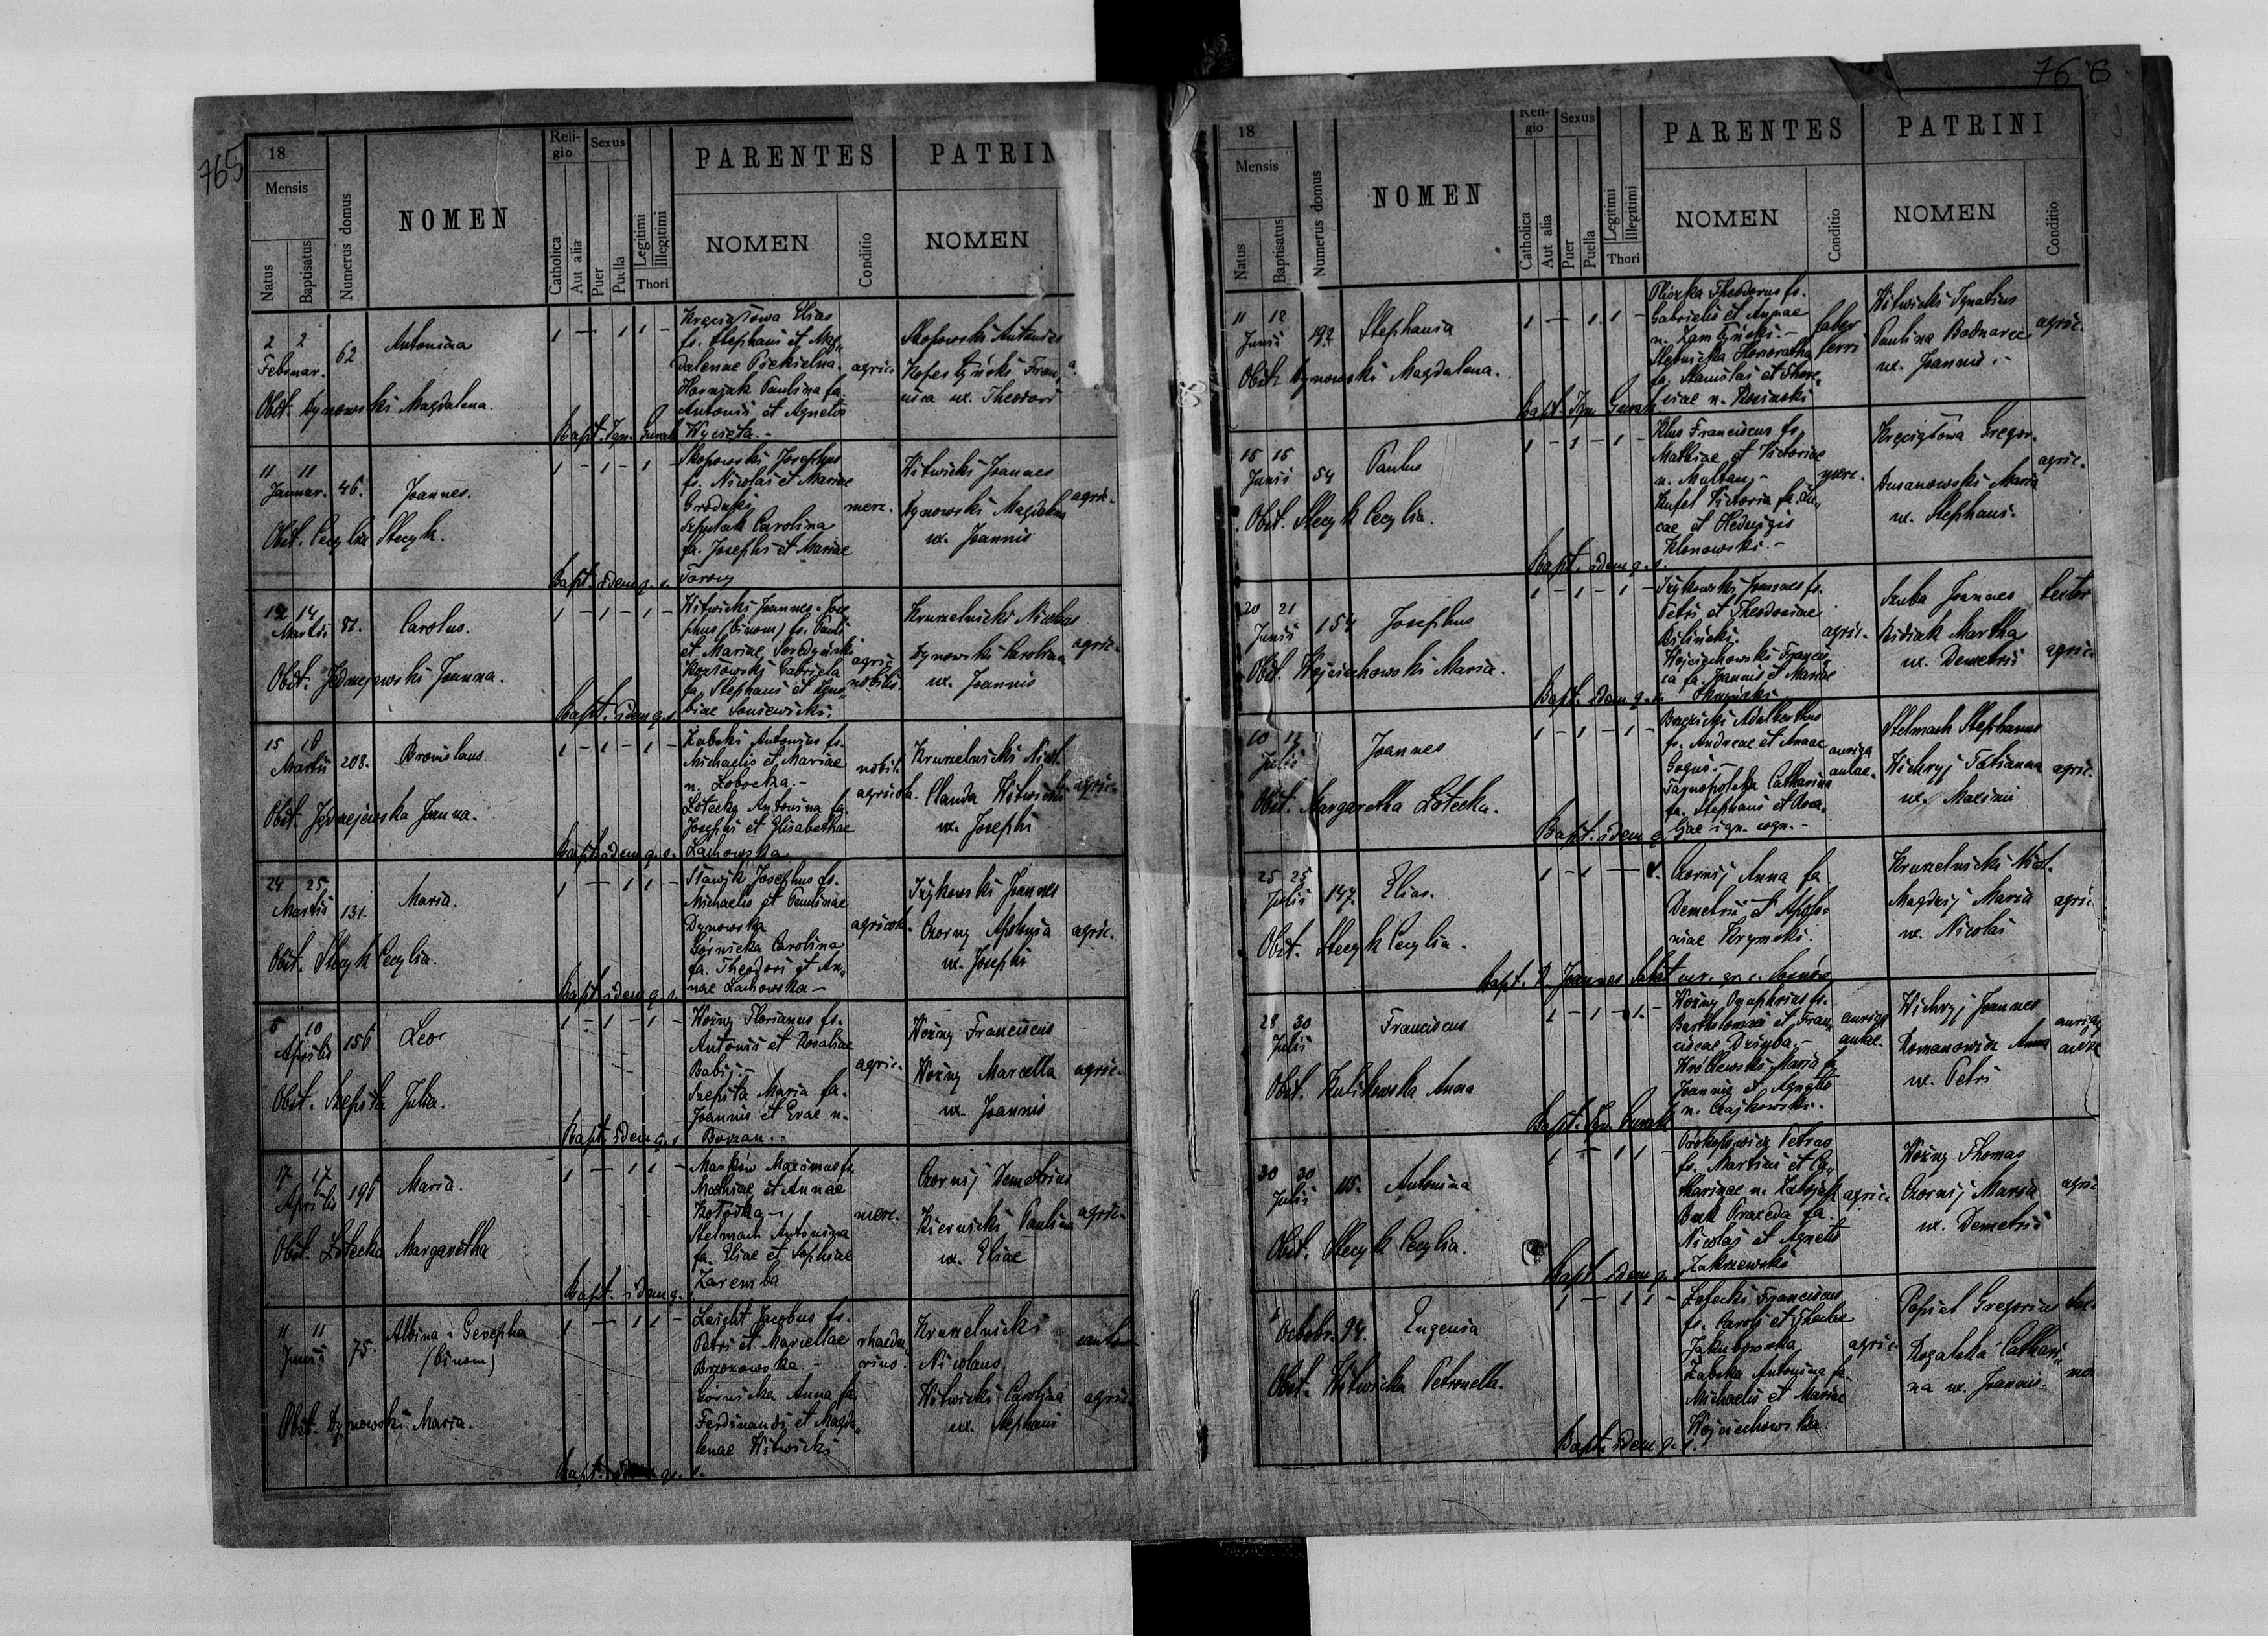 765
18
Mensis
Natus
Baptisatus
Numerus domus
NOMEN
Religio
Catholica
Aut alia
Sexus
Puer
Puella
Legitimi
Illegitimi
Thori
PARENTES
NOMEN
Conditio
PATRIN
NOMEN
2 2
Februar.
62
Antonina
1 — 1 1 —
Kręcigłowa Elias
fs. Stephani et Mag„
dalenae Piekielna
Horniak Paulina fa.
Antonii et Agnetis
Wycista.-
agric.
Skopowski Antonius
Fran„
cisca ux. Theodori
Obst. Dynowski Magdalena.
Bapt. Ign. Gurak
11 11
Januar.
46.
Joannes.
1 - 1 - 1 -
Skopowski Josephus
fs. Nicolai et Mariae
Grodzky
Carolina
fa. Josephi et Mariae
merc.
Witwicki Joannes
Dynowski Magdalena
ux. Joannis
agric.
Obst. Cecylia Stecyk.
Bapt. idem q. s.
14
Martii
81.
Carolus.
1 - 1 - 1 -
Witwicki Joannes-Jose
phus (binom) fs. Pauli
et Mariae Seredyński
Kozłowski Gabriela
fa. Stephani et Zeno„
biae
agric.
nobilis.
Kruszelnicki Nicolaus
Dynowski Carolina
ux. Joannis
agric.
Obst. Jędrzejewski Joanna.
Bapt. idem q. s.
15 18
Martii
208.
Bronislaus.
1 - 1 - 1 -
Żabski Antonius fs.
Michaelis et Mariae
n.
Łotecka Antonina fa.
Josephi et Elisabethae
Lachowska
nobil.
agricola.
Kruszelnicki Nicol.
Witwicki
ux. Josephi
agric.
Obst. Jędrzejewska Joanna.
Bapt. idem q. s.
24 25
Martii
131.
Maria.
1 — 1 1 -
Sławik Josephus fs.
Michaelis et Paulinae
Dynowska
Górnicka Carolina
fa. Theodori et An„
nae Lachowska -
agricola.
Iżykowski Joannes
Czorny Apolonia
ux. Josephi
agric.
Obst. Stecyk Cecylia.
Bapt. idem q. s.
10
Aprilis
156
Leo
1 - 1 - 1 -
Woźny Florianus fs.
Antonii et Rosaliae
Babij.-
Szepita Maria fa.
Joannis et Evae n.
agric.
Woźny Franciscus
Woźny Marcella
ux. Joannis
agric.
Obst. Szepita Julia.
Bapt. idem q. s.
17 17
Aprilis
196
Maria.
1 - 1 1 -
Marków Maximus fs.
Mathiae et Annae
Stelmach Antonina
fa. Eliae et Sophiae
Zaremba
merc.
Czornij Demetrius
Kiernicki Paulina
ux. Eliae
agric.
Obst. Łotecka Margaretha
Bapt. idem q. s.
11 11
Junii
75.
Albina-Genepha
(binom)
1 - 1 1 -
Jacobus fs.
Petri et Marcellae
Brzozowska.-
Górnicka Anna fa.
Ferdinandi et Magda„
lenae Witwicki
rhaeda„
rius.
Kruszelnicki
Nicolaus
Witwicki Carolina
ux. Stephani
agric.
Obst. Dynowski Maria.
Bapt. idem q. s.
18
Mensis
Natus
Baptisatus
Numerus domus
NOMEN
Religio
Catholica
Aut alia
Sexus
Puer
Puella
Legitimi
Illegitimi
Thori
PARENTES
NOMEN
Conditio
PATRINI
NOMEN
Conditio
11 12
Junii
192
Stephania
1 - 1 1 -
Theodorus fs.
Gabrielis et Annae
n. Zamłyński.-
Honoratha
fa. Stanislai et There„
siae n.
faber
ferri
Witwicki Ignatius
Paulina Bodnarec
ux. Joannis.-
agric.
Obst. Dynowski Magdalena.
Bapt. Ign. Gurak
15 15
Junii
54
Paulus
1 - 1 - 1 -
Klus Franciscus fs.
Mathiae et Victoriae
n. Multan.-
Kufel Victoria fa. Lu„
cae et Hedwigis
Klonowski.-
merc.
Kręcigłowa Gregor.
Dusanowski Maria
ux. Stephani.
agric.
Obst. Stecyk Cecylia.
Bapt. idem q. s.
20 21
Junii
154
Josephus
1 - 1 - 1 -
Iżykowski Joannes fs.
Petri et Theodosiae
Biliński.
Wojciechowski Francis„
ca fa. Joannis et Mariae
agric.
Szuba Joannes
Martha
ux. Demetrii
agric.
Obst. Wojciechowski Maria.
Bapt. idem q. s.
10
Julii
Joannes
1 - 1 - 1 -
Adalbertus
fs. Andreae et Annae
Tarnopolska Catharina
fa. Stephani et Rosa„
liae ign. cogn.-
auriga
aulae.
Stelmach Stephanus
Wichryj Tatianna
ux. Maximi
agric.
Obst. Margaretha Łotecka.
Bapt. idem q. s.
25 25
Julii
147.
Elias.
1 - 1 - 1.
Czornij Anna fa.
Demetrii et Apolo„
niae Krymski.
Kruszelnicki Nicol.
Magdzij Maria
ux. Nicolai
agric.
Obst. Stecyk Cecylia.
Bapt. R. Joannes
28 30
Julii
Franciscus
1 - 1 - 1 -
Woźny Onuphrius fs.
Bartholomaei et Fran„
ciscae Dziuba.-
Wróblewski Maria fa.
Joannis et Agnetis
n. Czajkowski.
auriga
aulae.
Wichryj Joannes
Romanowicz Anna
ux. Petri
auriga
aulae
Obst. Kulikowska Anna
Bapt. Ign. Gurak
30 30
Julii
115.
Antonina
1 - 1 1 -
Prokopowicz Petrus
fs. Martini et Ca„
tharinae n.
Praxeda fa.
Nicolai et Agnetis
Zakrzewski
agric.
Woźny Thomas
Czornij Maria
ux. Demetrii
agric.
Obst. Stecyk Cecylia.
Bapt. idem q. s.
Octobr.
94.
Eugenia
1 - 1 1 -
Łotecki Franciscus
fs. Caroli et Theclae
Jakubowska
Żabska Antonina fa.
Michaelis et Mariae
Wojciechowska.
agric.
Popiel Gregorius
Rogalska Cathari„
na ux. Joannis.
Obst. Witwicka Petronella.
Bapt. idem q. s.